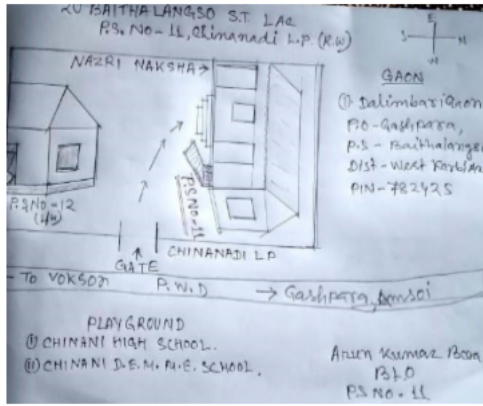 20 BAITHALANGSO S.T. LAC
P.S. No - 11, Chinanadi L.P. (R.W)
NAZRI NAKSHA
E
S N
W
GAON
(i) Dalimbari Gaon
P.O - Gashpara,
P.S - Baithalangso
Dist - West Karbi
PIN - 782425
P.S No - 12
P.S NO - 11
CHINANADI L.P
GATE
- TO VOKSON P.W.D → Gashpara,
PLAYGROUND
(i) CHINANI HIGH SCHOOL.
(ii) CHINANI D.E.M. M.E. SCHOOL.
Kumar
BLO
P.S NO. 11